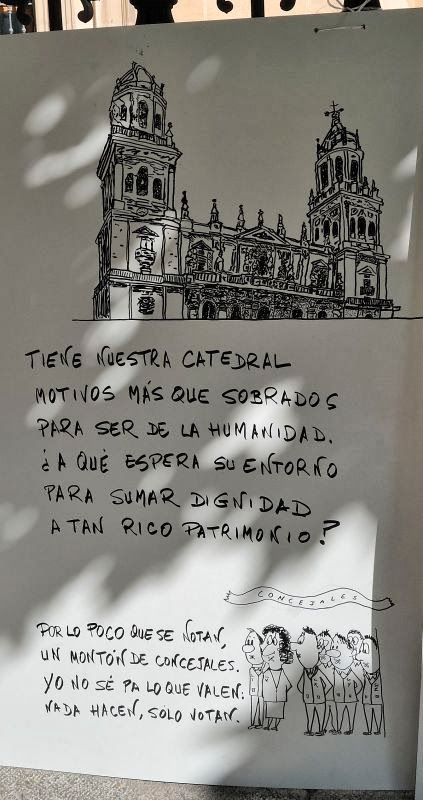 TIENE NUESTRA CATEDRAL
MOTIVOS MÁS QUE SOBRADOS
PARA SER DE LA HUMANIDAD.
¿A QUÉ ESPERA SU ENTORNO
PARA SUMAR DIGNIDAD
A TAN RICO PATRIMONIO?
CONCEJALES
POR LO POCO QUE SE NOTAN,
UN MONTÓN DE CONCEJALES.
YO NO SÉ PA LO QUE VALEN:
NADA HACEN, SÓLO VOTAN.